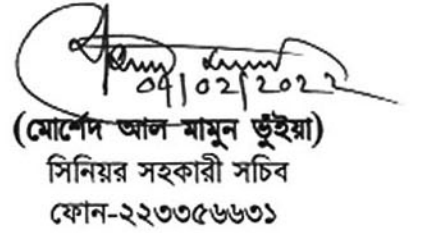 04/02/2022
(মোর্শেদ আল মামুন ভুঁইয়া)
সিনিয়র সহকারী সচিব
ফোন-২২৩৩৫৬৬৩১